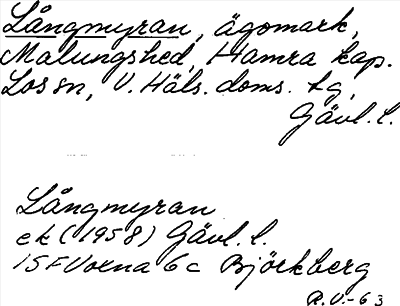 Långmyran, ägomark,
Malungshed, Hamra kap.
Los sn, V. Häls. doms. tg,
Gävl. l.
Långmyran
ek (1958) Gävl. l.
15F Voxna 6c Björkberg
R.V.-63